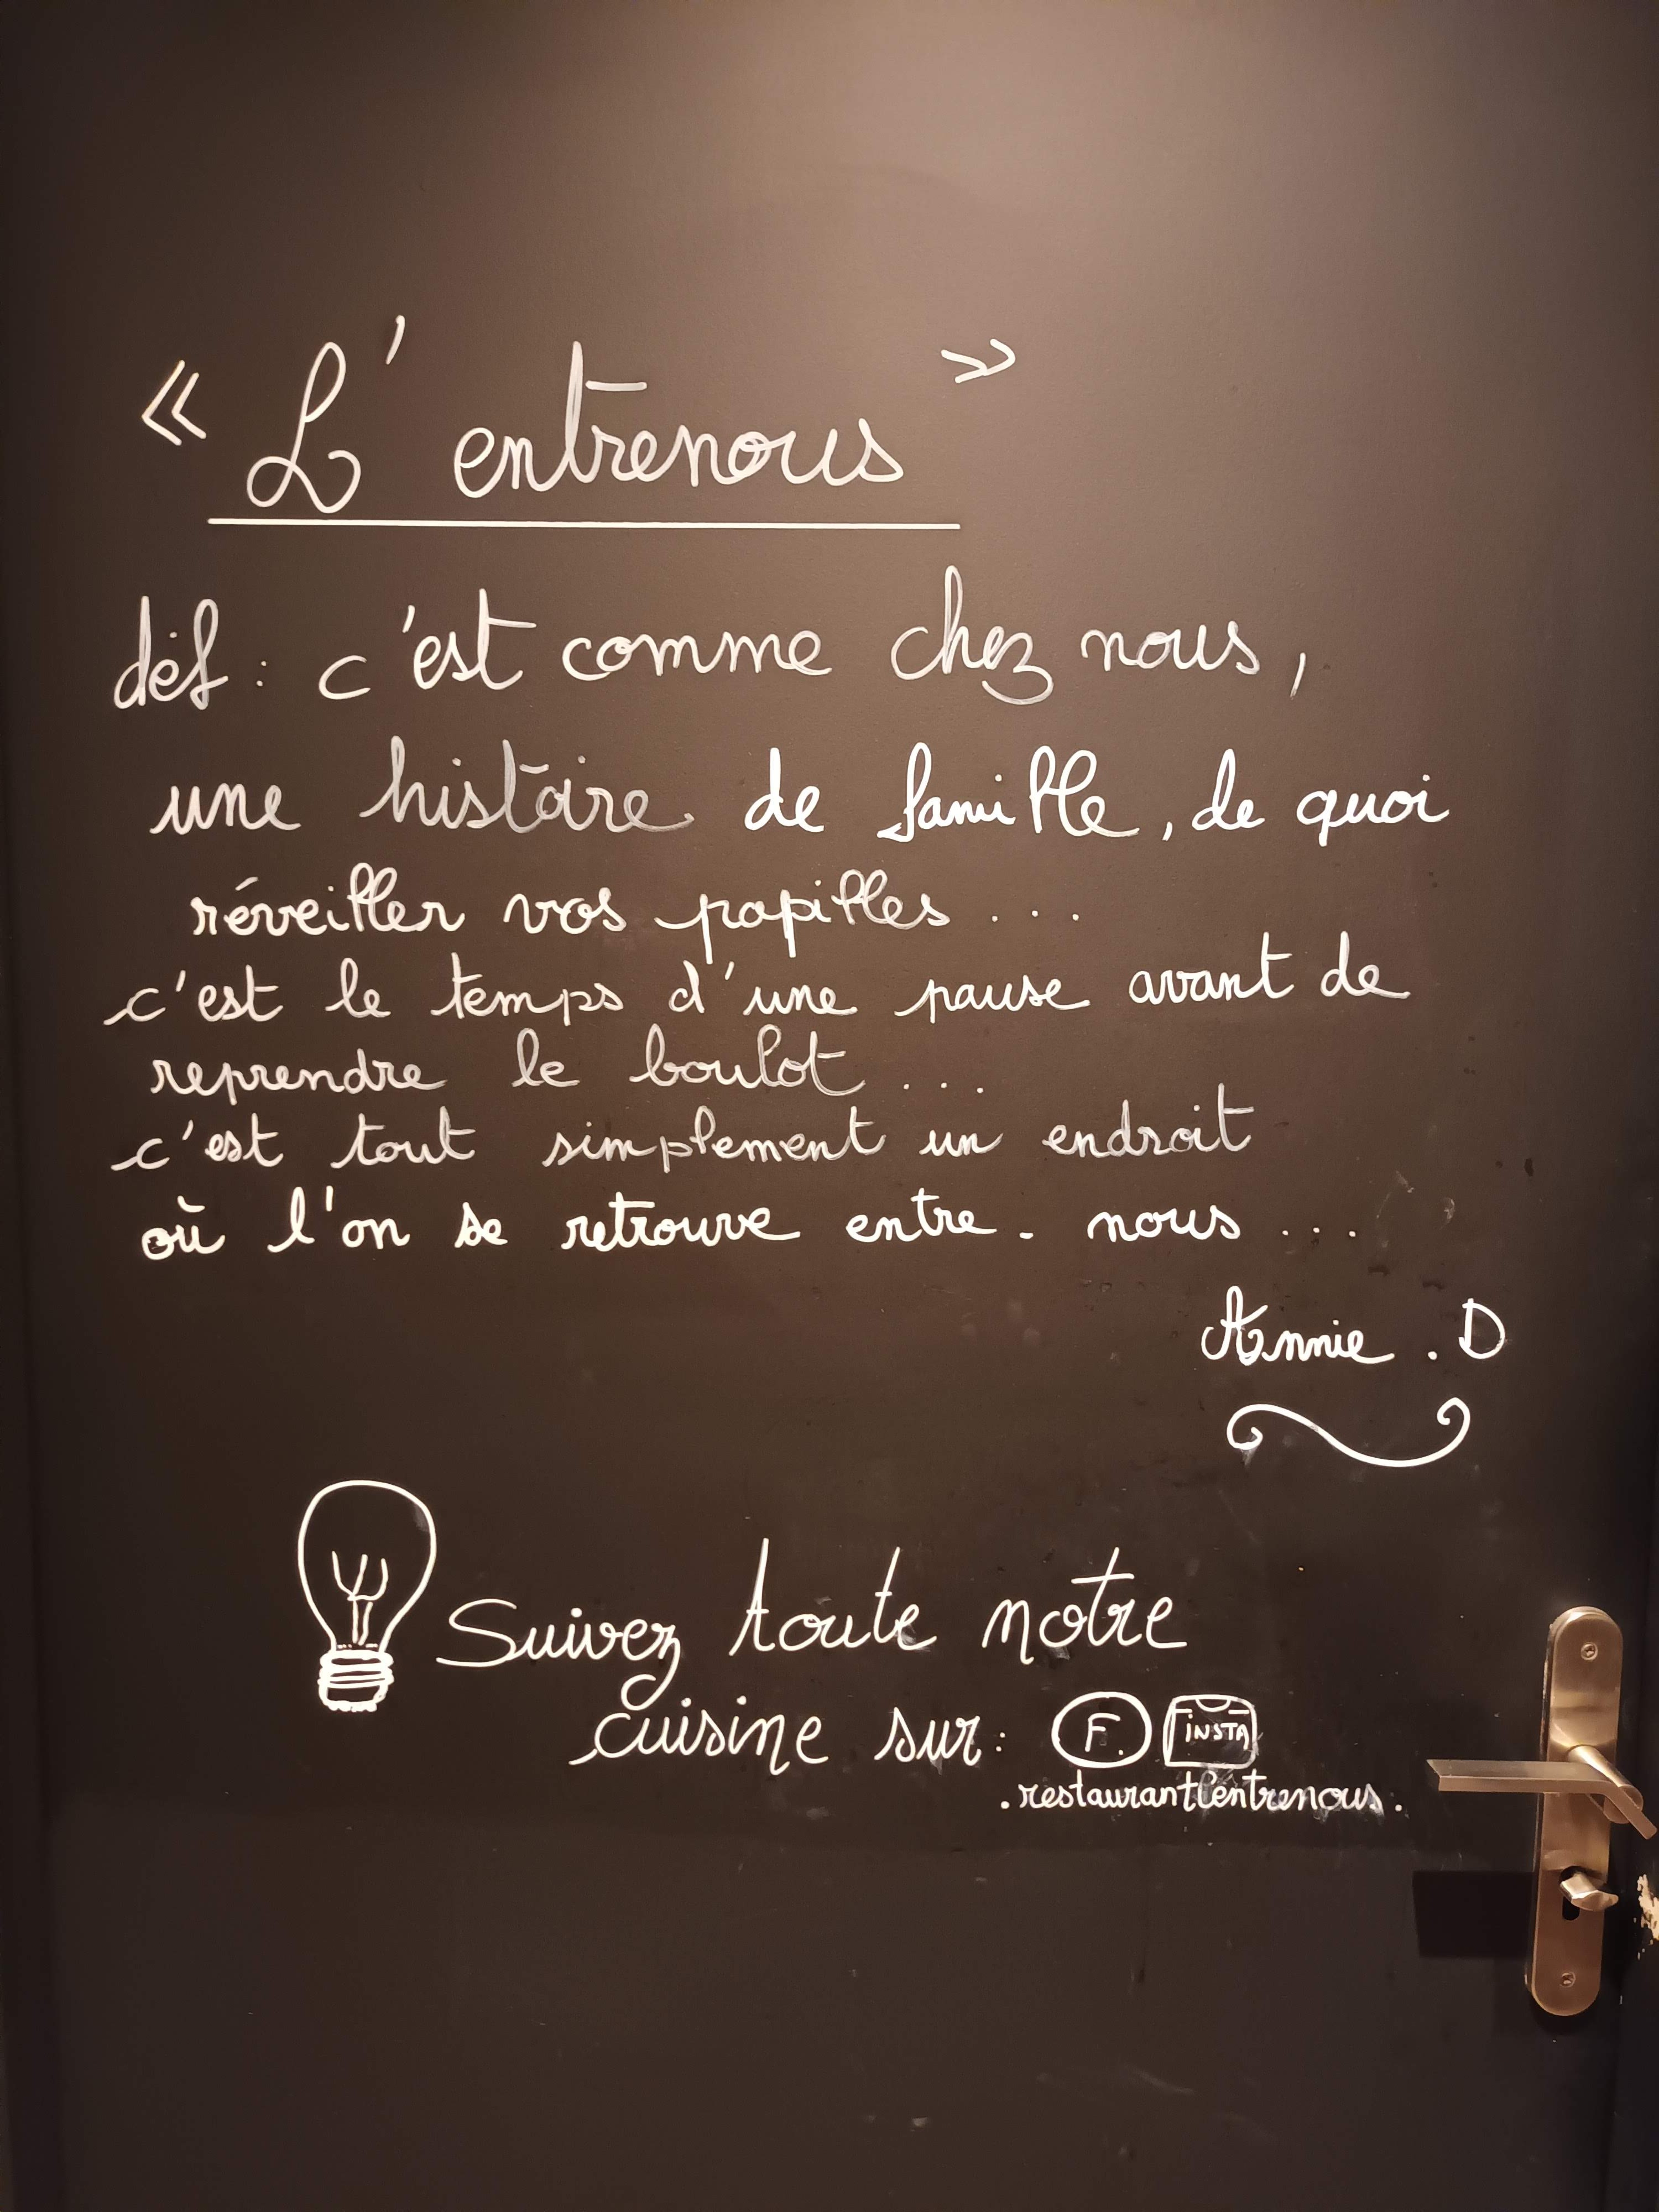 « L'entrenous »
déf : c'est comme chez nous,
une histoire de famille, de quoi
réveiller vos papilles ...
c'est le temps d'une pause avant de
reprendre le boulot ...
c'est tout simplement un endroit
où l'on se retrouve entre-nous ...
Annie . D
Suivez toute notre
cuisine sur : F. INSTA
.restaurantl'entrenous.